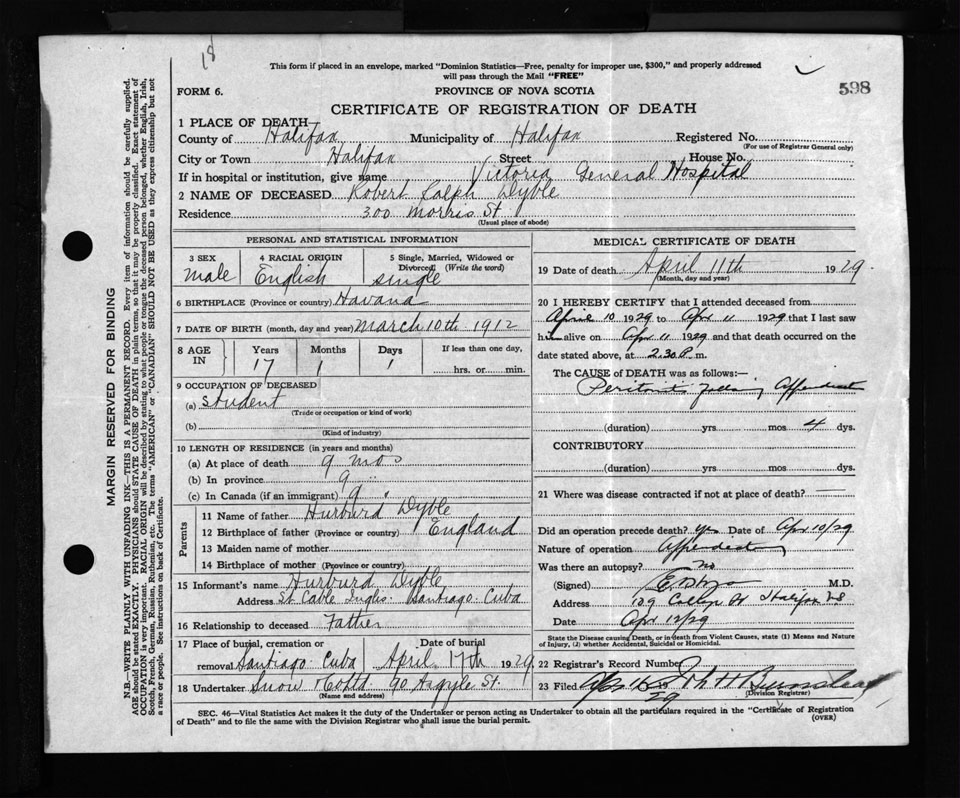 18
This form if placed in an envelope, marked "Dominion Statistics—Free, penalty for improper use, $300," and properly addressed
will pass through the Mail "FREE"
598
FORM 6.
PROVINCE OF NOVA SCOTIA
CERTIFICATE OF REGISTRATION OF DEATH
1 PLACE OF DEATH
County of Halifax Municipality of Halifax Registered No.
(For use of Registrar General only)
City or Town Halifax Street House No.
If in hospital or institution, give name Victoria General Hospital
2 NAME OF DECEASED Robert Ralph Dyble
Residence 300 Morris St
(Usual place of abode)
PERSONAL AND STATISTICAL INFORMATION
3 SEX
male
4 RACIAL ORIGIN
English
5 Single, Married, Widowed or
Divorced (Write the word)
single
6 BIRTHPLACE (Province or country) Havana
7 DATE OF BIRTH (month, day and year) March 10th 1912
8 AGE IN Years Months Days If less than one day,
17 1 1 hrs. or min.
9 OCCUPATION OF DECEASED
(a) student
(Trade or occupation or kind of work)
(b)
(Kind of industry)
10 LENGTH OF RESIDENCE (in years and months)
(a) At place of death 9 mos
(b) In province 9 "
(c) In Canada (if an immigrant) 9 "
Parents
11 Name of father Hurburd Dyble
12 Birthplace of father (Province or country) England
13 Maiden name of mother
14 Birthplace of mother (Province or country)
15 Informant's name Hurburd Dyble
Address Santiago Cuba
16 Relationship to deceased Father
17 Place of burial, cremation or Date of burial
removal Santiago Cuba April 17th 1929
18 Undertaker Snow & Co Ltd 90 Argyle St.
(Name and address)
MEDICAL CERTIFICATE OF DEATH
19 Date of death April 11th 1929.
(Month, day and year)
20 I HEREBY CERTIFY that I attended deceased from
April 10 1929 to Apr 11 1929 that I last saw
him alive on Apr 11 1929 and that death occurred on the
date stated above, at 2.30 P. m.
The CAUSE of DEATH was as follows:—
Peritonitis following Appendicitis
(duration) yrs mos 4 dys.
CONTRIBUTORY
(duration) yrs mos dys.
21 Where was disease contracted if not at place of death?
Did an operation precede death? yes Date of Apr 10/29
Nature of operation
Was there an autopsy? no
(Signed) M.D.
Address 109 College St Halifax NS
Date Apr 12/29
State the Disease causing Death, or in death from Violent Causes, state (1) Means and Nature
of Injury, (2) whether Accidental, Suicidal or Homicidal.
22 Registrar's Record Number
23 Filed
(Division Registrar)
SEC. 46—Vital Statistics Act makes it the duty of the Undertaker or person acting as Undertaker to obtain all the particulars required in the "Certificate of Registration
of Death" and to file the same with the Division Registrar who shall issue the burial permit.
(OVER)
MARGIN RESERVED FOR BINDING
N.B.—WRITE PLAINLY WITH UNFADING INK—THIS IS A PERMANENT RECORD. Every item of information should be carefully supplied.
AGE should be stated EXACTLY. PHYSICIANS should STATE CAUSE OF DEATH in plain terms, so that it may be properly classified. Exact statement of
OCCUPATION is very important. RACIAL ORIGIN will be described by stating to what people or tongue the deceased person belonged, whether English, Irish,
Scotch, French, German, Russian, Ruthenian, etc. The terms "AMERICAN" or "CANADIAN" SHOULD NOT BE USED as they express citizenship but not
a race or people. See instructions on back of Certificate.